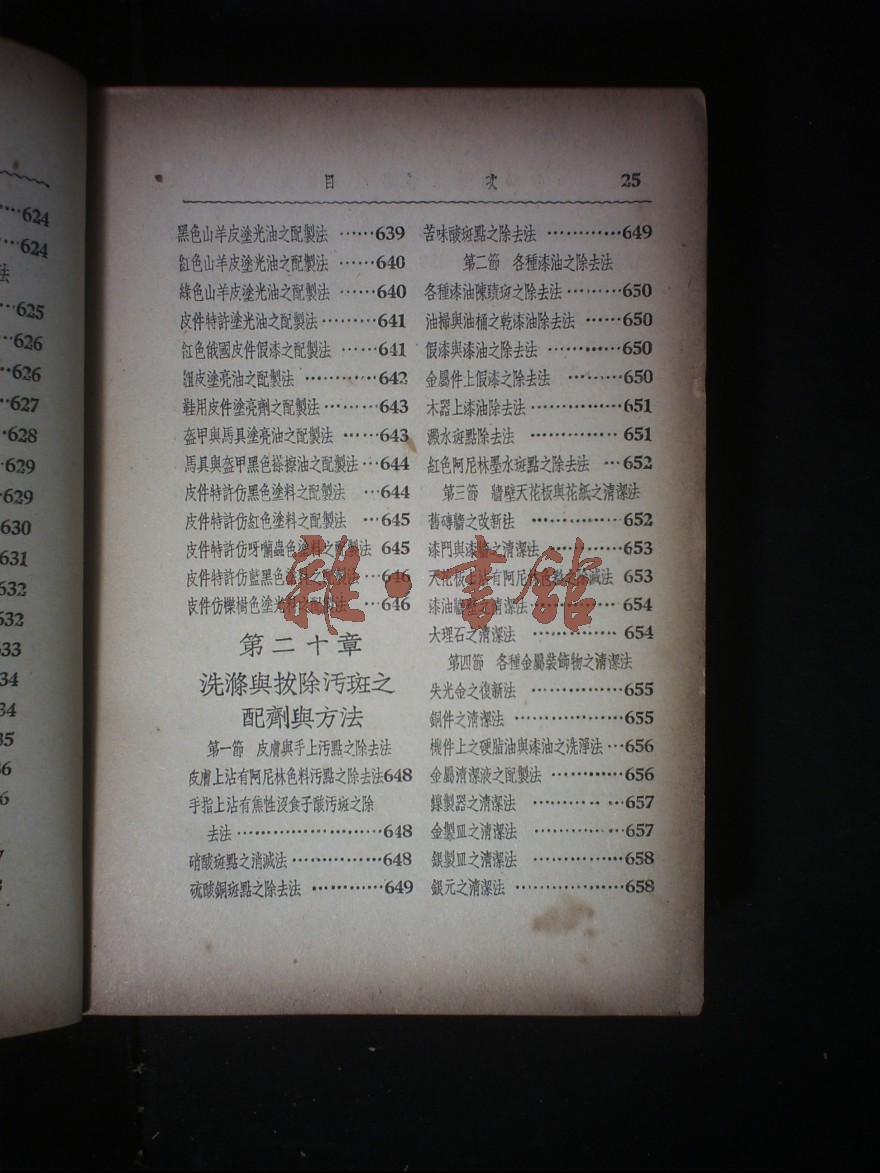 目 次 25
黑色山羊皮塗光油之配製法 ……639
紅色山羊皮塗光油之配製法 ……640
綠色山羊皮塗光油之配製法 ……640
皮件特許塗光油之配製法………641
紅色俄國皮件假漆之配製法 ……641
皮塗亮油之配製法 …………642
鞋用皮件塗亮劑之配製法………643
盔甲與馬具塗亮油之配製法 ……643
馬具與盔甲黑色搽擦油之配製法…644
皮件特許仿黑色塗料之配製法 …644
皮件特許仿紅色塗料之配製法 …645
皮件特許仿呀囒蟲色塗料之配製法 645
皮件特許仿藍黑色塗料之配製法…646
皮件仿櫟樹色塗光料之配製法 …646
第二十章
洗滌與拔除汚斑之
配劑與方法
第一節 皮膚與手上汚點之除去法
皮膚上沾有阿尼林色料汚點之除去法648
手指上沾有焦性沒食子酸汚斑之除
去法……………………648
硝酸斑點之消滅法……………648
硫酸銅斑點之除去法 …………649
苦味酸斑點之除去法 …………649
第二節 各種漆油之除去法
各種漆油陳蹟斑之除去法………650
油掃與油桶之乾漆油除去法 ……650
假漆與漆油之除去法 …………650
金屬件上假漆之除去法 ………650
木器上漆油除去法……………651
澱水斑點除去法 ……………651
紅色阿尼林墨水斑點之除去法 …652
第三節 牆壁天花板與花紙之清潔法
舊磚牆之改新法 ……………652
漆門與漆牆之清潔法……………653
天花板上沾有阿尼林色點之消滅法 653
漆油牆壁之清潔法……………654
大理石之清潔法 ……………654
第四節 各種金屬裝飾物之清潔法
失光金之復新法 ……………655
銅件之清潔法 ………………655
機件上之硬脂油與漆油之洗淨法…656
金屬清潔液之配製法 …………656
鎳製器之清潔法 ……………657
金製皿之清潔法 ……………657
銀製皿之清潔法 ……………658
銀元之清潔法 ………………658
…624
…624
法
…625
…626
…626
…627
…628
629
629
630
631
632
632
633
34
34
35
36
6
雜·書館